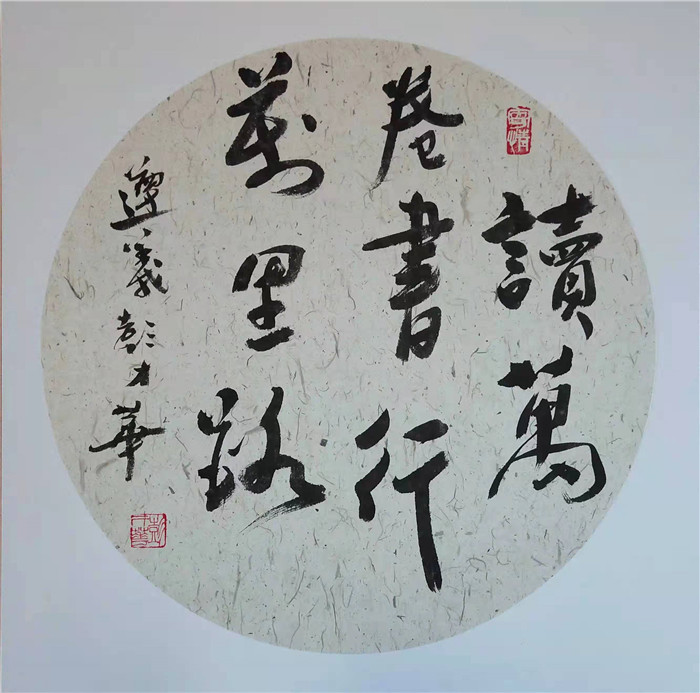 讀萬
卷書行
萬里路
遵義彭才華
彭才華